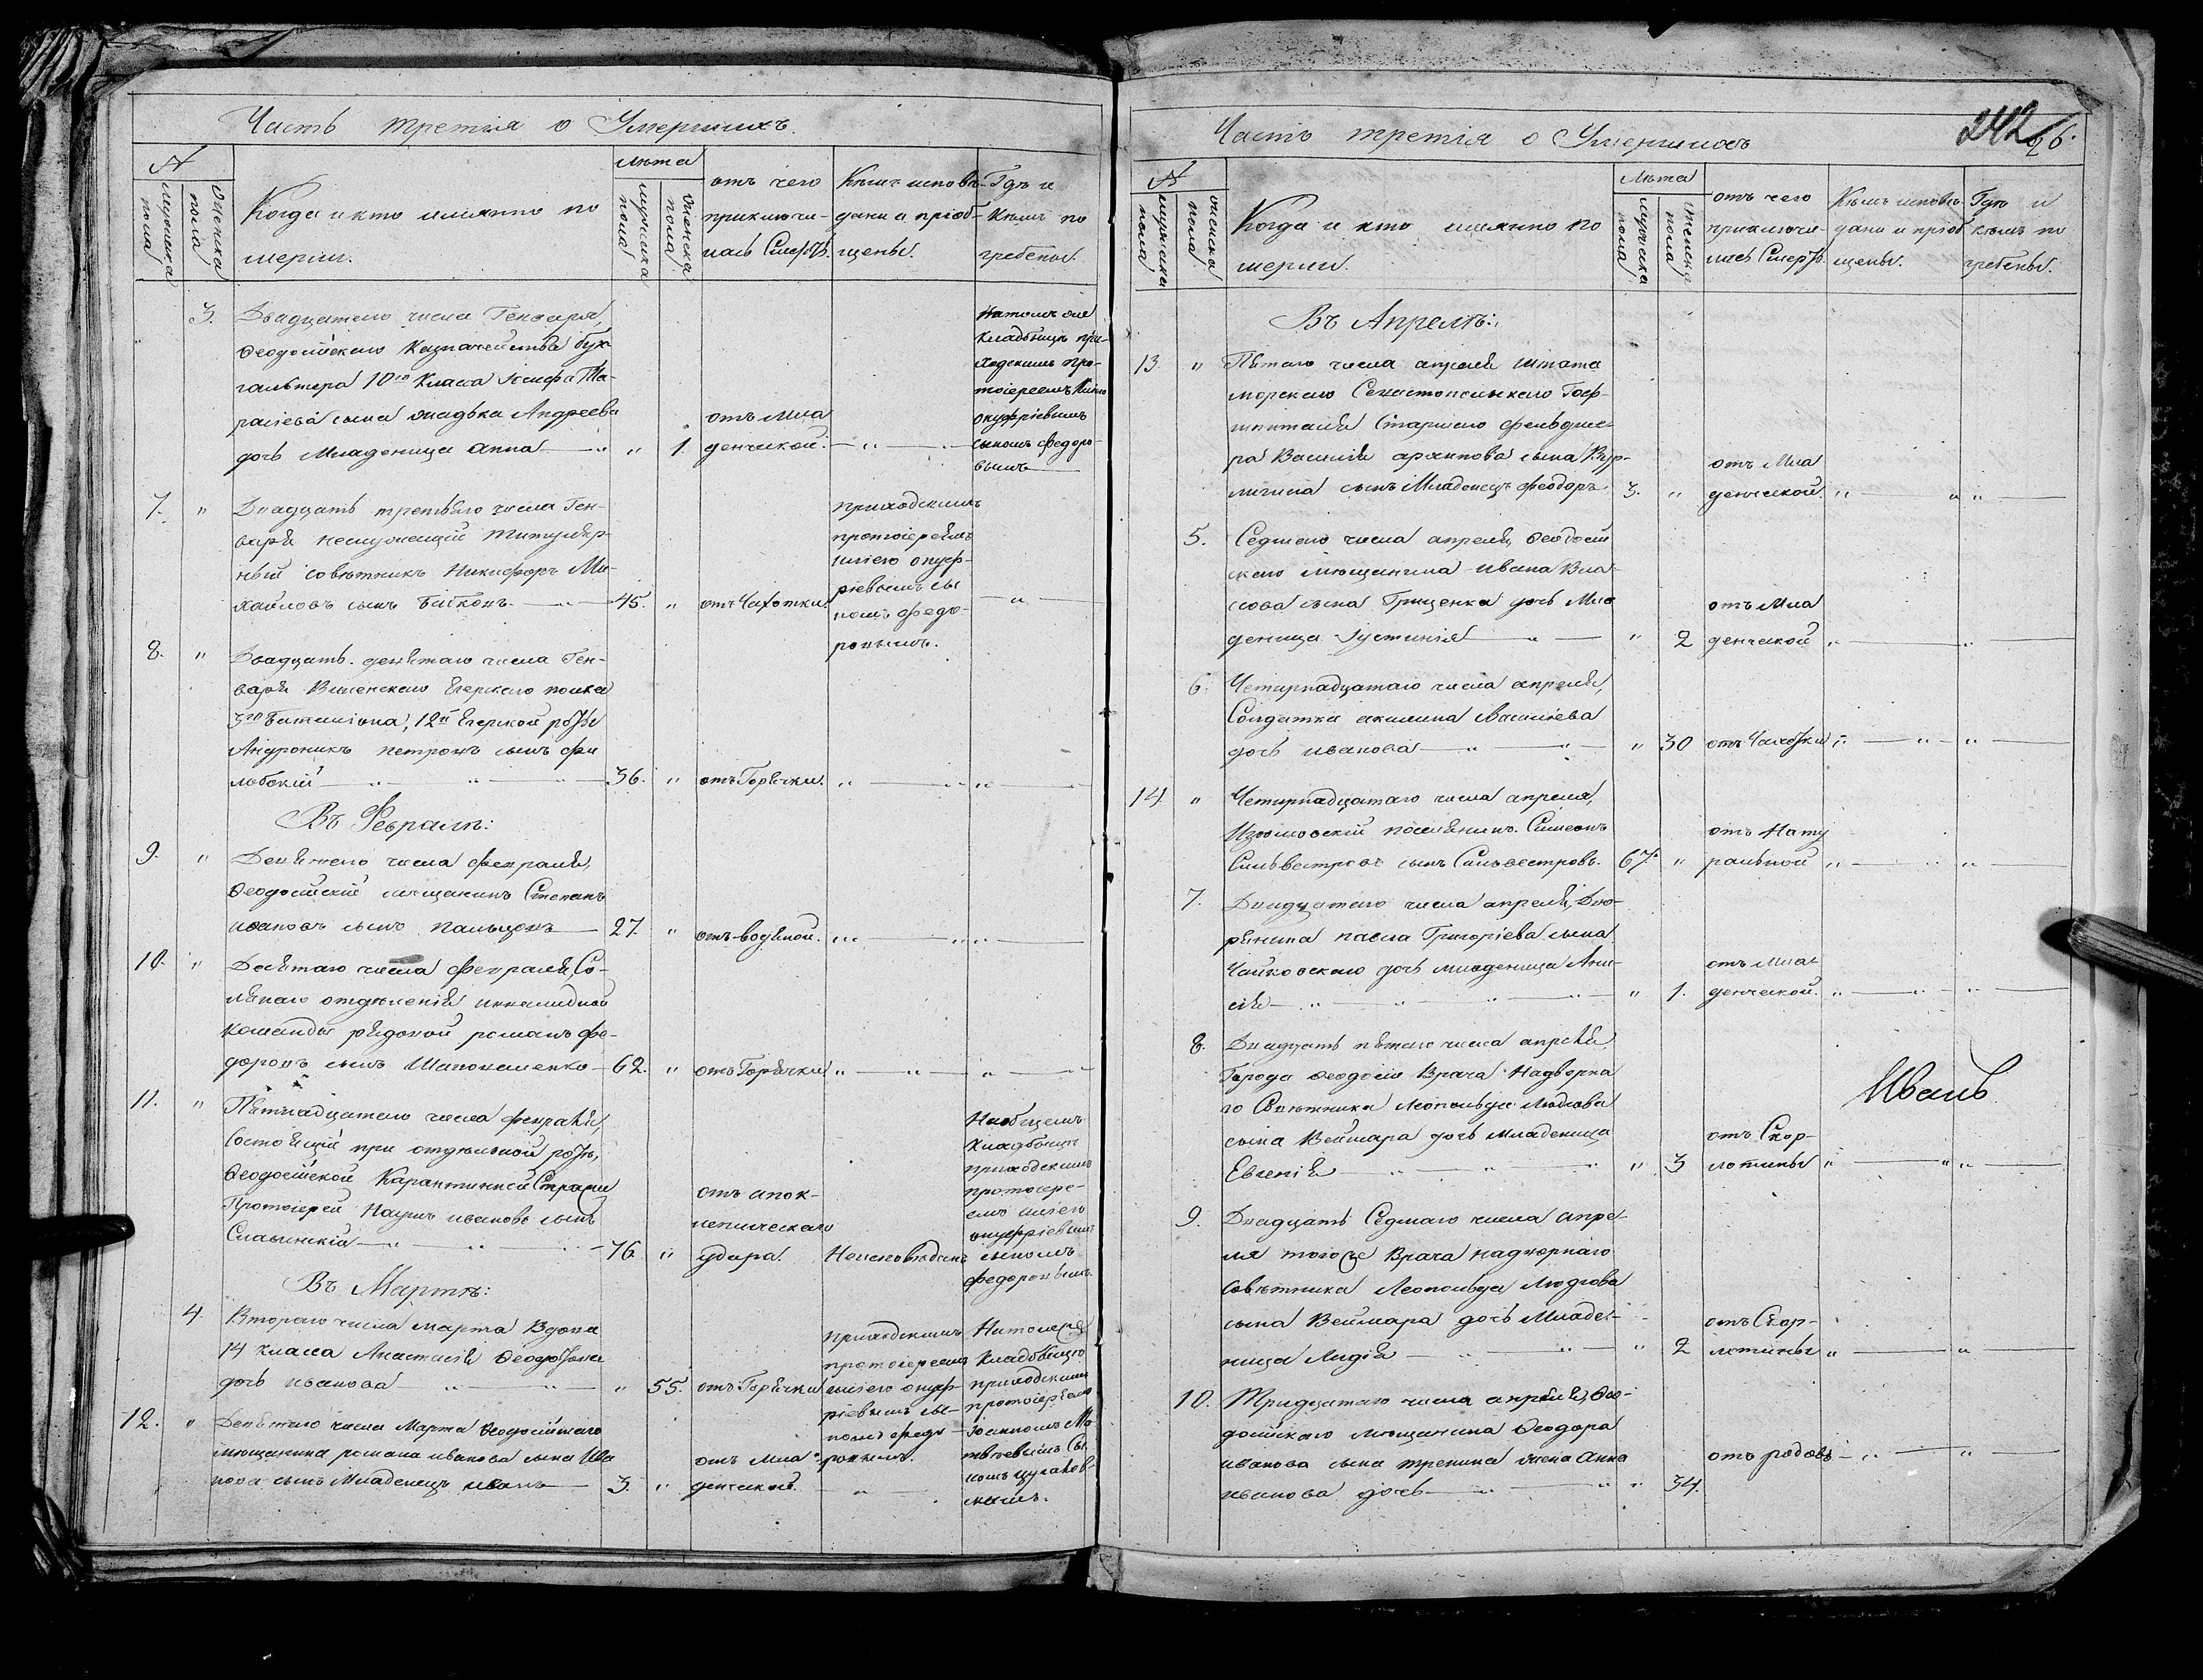 Часть третія о Умершихъ.
№
мужеска пола
женска пола
Когда и кто именно по
мерши.
лѣта
мужеска пола
женска пола
отъ чего
приключи-
лась Смерть.
Кѣмъ исповѣ-
даны и пріоб-
щены.
Гдѣ и
Кѣмъ по
гребены.
3. Двадцатаго числа Генваря,
Феодосійскаго Казначейства бух-
галтера 10го Класса Іосифа
раліева сына Андреева
дочь Младеница Анна " 1.
отъ Мла
денческой.
На томъ же
Кладбищѣ при-
ходскимъ про-
тоіереемъ
онуфріевымъ
сыномъ федоро-
вымъ
7. " Двадцать третьяго числа Ген-
варя неслужащій титуляр-
ный совѣтникъ Никифоръ Ми-
хайловъ сынъ 45. " отъ Чахотки.
приходскимъ
протоіереемъ
онуф-
ріевымъ сы
номъ федо-
ровымъ.
8. " Двадцать девятаго числа Ген-
варя Виленскаго Егерскаго полка
3го Баталіона, 12й Егерской роты
Андроникъ петровъ сынъ
36. " отъ Горячки.
Въ Февралѣ:
9. " Девятаго числа февраля,
Феодосійскій мѣщанинъ Степанъ
ивановъ сынъ Пальцовъ 27. " отъ водяной.
10. " Десятаго числа февраля, Со-
лянаго отдѣленія инвалидной
команды рядовой романъ фе-
доровъ сынъ Шаповаленко 62. " отъ Горячки
11. " Пятнадцатаго числа февраля,
Состоящій при отдѣльной ротѣ,
Феодосійской Карантинной Стражи
Протоіерей Наумъ ивановъ сынъ
Славинскій 76. "
отъ апок-
лепическаго
удара. Неисповѣданъ
На общемъ
Кладбищѣ
приходскимъ
протоіере-
емъ
онуфріевымъ
сыномъ
федоровымъ.
Въ Мартѣ:
4. Втораго числа марта Вдова
14 класса Анастасія
дочь иванова " 55. отъ Горячки
приходскимъ
протоіереемъ
онуф-
ріевымъ сы-
номъ федо-
ровымъ.
12. " Девятаго числа Марта Феодосійскаго
мѣщанина романа иванова сына Ива
нова сынъ Младенецъ иванъ 3. "
отъ Мла-
денческой.
На томъ же
Кладбищѣ
приходскимъ
протоіереемъ
Іоанномъ Ма
твѣевымъ Сы
номъ
Часть третія о Умершихъ
242 26.
№
мужеска пола
женска пола
Когда и кто именно по
мерши.
Лѣта
мужеска пола
женска пола
отъ чего
приключи-
лась Смерть.
Кѣмъ исповѣ-
даны и пріоб
щены.
Гдѣ и
кѣмъ по
гребены.
Въ Апрелѣ:
13. " Пятаго числа апреля штата
морскаго Севастопольскаго Гос-
питаля Старшаго фельдше-
ра Василія архипова сына Кур-
сынъ Младенецъ феодоръ 3. "
отъ Мла
денческой.
5. Седмаго числа апреля, Феодосій
скаго мѣщанина ивана Вла-
сова сына Гриценка дочь Мла
деница Іустинія " 2
отъ Мла
денческой
6. Четырнадцатаго числа апреля,
Солдатка акилина Васильева
дочь иванова " 30 отъ Чахотки
14 " Четырнадцатаго числа апреля,
поселянинъ Симеонъ
Сильвестровъ сынъ Сильвестровъ. 67. "
отъ Нату
ральной
7. Двадцатаго числа апреля, Дво-
рянина павла Григоріева сына
Чайковскаго дочь младеница Ани-
сія " 1.
отъ Мла-
денческой.
8. Двадцать пятаго числа апреля
Города Феодосіи Врача Надворна
го Совѣтника Леопольда
сына Веймара дочь младеница
Евгенія " 3
отъ Скор-
лотины
Иванъ
9. Двадцать Седмаго числа апре-
ля того же Врача надворнаго
Совѣтника Леопольда
сына Веймара дочь Младе-
ница Лидія " 2
отъ Скор-
лотины
10. Тридцатаго числа апреля, Фео-
досійскаго мѣщанина Феодора
иванова сына жена анна
иванова дочь " 34.
отъ родовъ